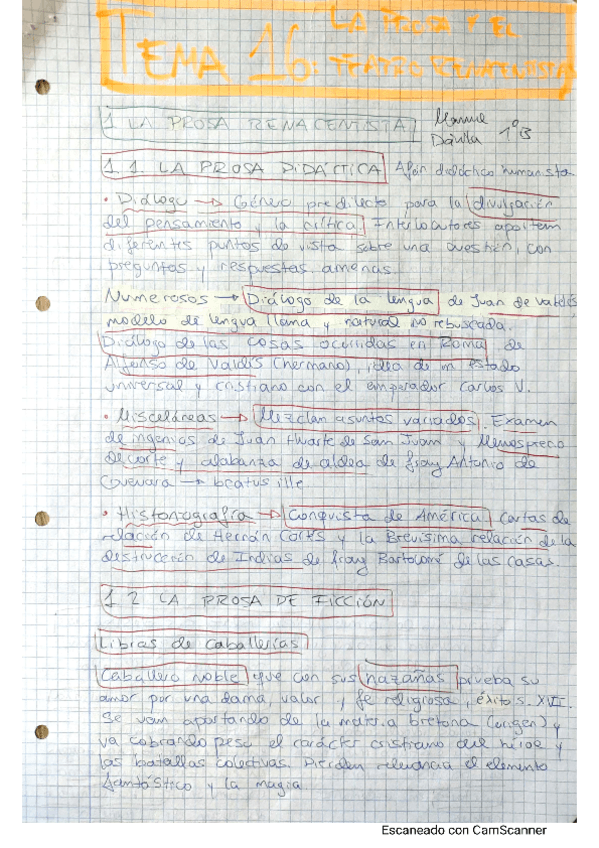 TEMA 16: LA PROSA Y EL
TEATRO RENACENTISTA
1 LA PROSA RENACENTISTA
Dávila 1ºB
1.1. LA PROSA DIDÁCTICA Afán didáctico humanista
• Diálogo → Género predilecto para la divulgación
del pensamiento y la crítica. Interlocutores aportan
diferentes puntos de vista sobre una cuestión, con
preguntas y respuestas amenas.
Numerosos → Diálogo de la lengua de Juan de Valdés
modelo de lengua llana y natural no rebuscada.
Diálogo de las cosas ocurridas en Roma de
Alfonso de Valdés (hermano), idea de un Estado
universal y cristiano con el emperador Carlos V.
• Misceláneas → Mezclan asuntos variados. Examen
de ingenios de Juan Huarte de San Juan y Menosprecio
de corte y alabanza de aldea de fray Antonio de
Guevara → beatus ille
• Historiografía → Conquista de América Cartas de
relación de Hernán Cortés y la Brevísima relación de la
destrucción de Indias de fray Bartolomé de las Casas.
1.2 LA PROSA DE FICCIÓN
Libros de caballerías
Caballero noble que con sus hazañas prueba su
amor por una dama, valor y fe religiosa, éxito s. XVI.
Se van apartando de la materia bretona (origen) y
va cobrando peso el carácter cristiano del héroe y
las batallas colectivas. Pierden relevancia el elemento
fantástico y la magia
Escaneado con CamScanner